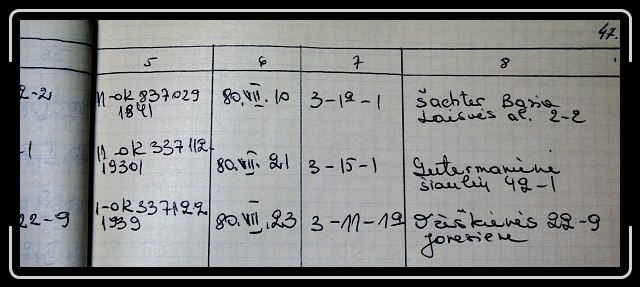 47.
5 6 7 8
2-2 11-OK 837029 80.VII.10 3-12-1 Šachter Basia
1841 Laisvės al. 2-2
-1 11-OK 337112 80.VII.21 3-15-1 Gutermanienė
19301 Šiaulių 42-1
22-9 1-OK 337122 80.VII.23 3-11-12 22-9
1939